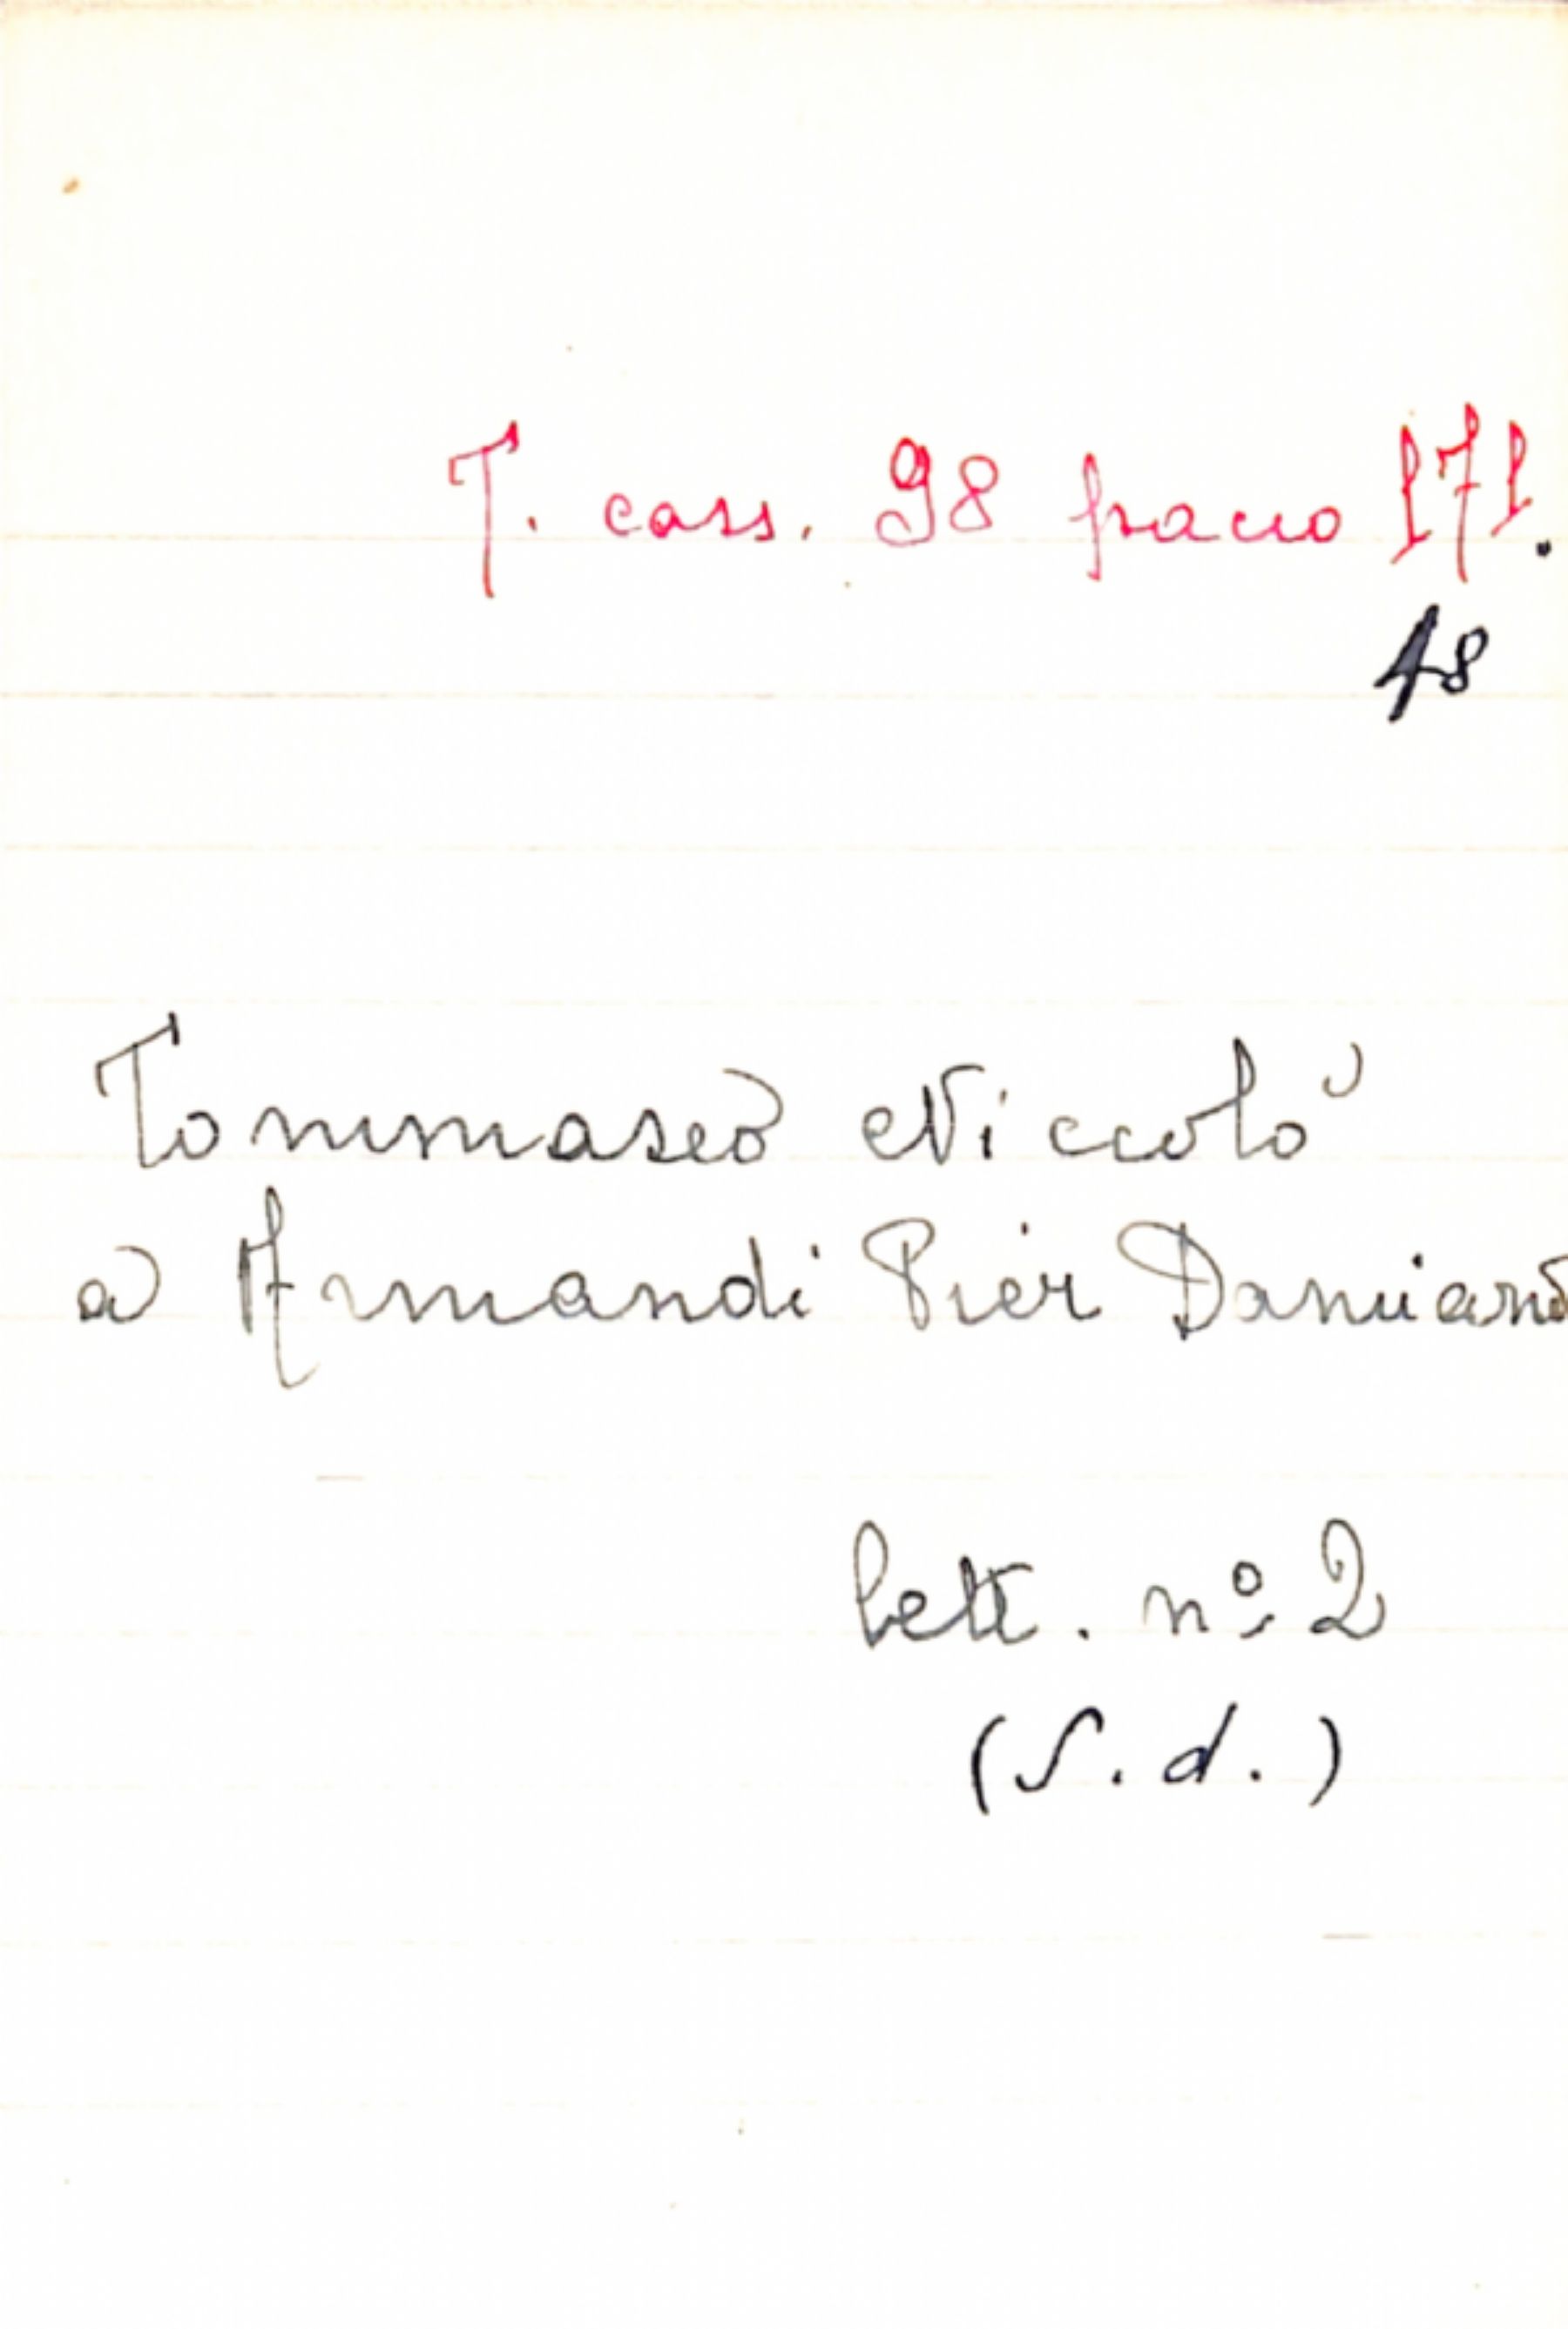 T. cass. 98 pacco 171.
48
Tommaseo Niccolò
a Armandi Pier Damiano
lett. nº 2
(S. d.)